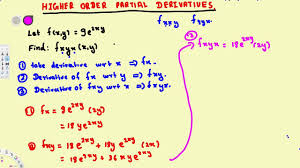 HIGHER ORDER PARTIAL DERIVATIVES
fxxy fxyx.
Let f(x,y) = 9e^2xy
Find: fxyx (x,y)
① take derivative w.r.t x ⇒ fx.
② Derivative of fx w.r.t y ⇒ fxy
③ Derivative of fxy w.r.t x ⇒ fxyx
① fx = 9e^2xy (2y)
= 18ye^2xy
② fxy = 18e^2xy + 18ye^2xy (2x)
= 18e^2xy + 36xye^2xy
③ fxyx = 18e^2xy (2y)